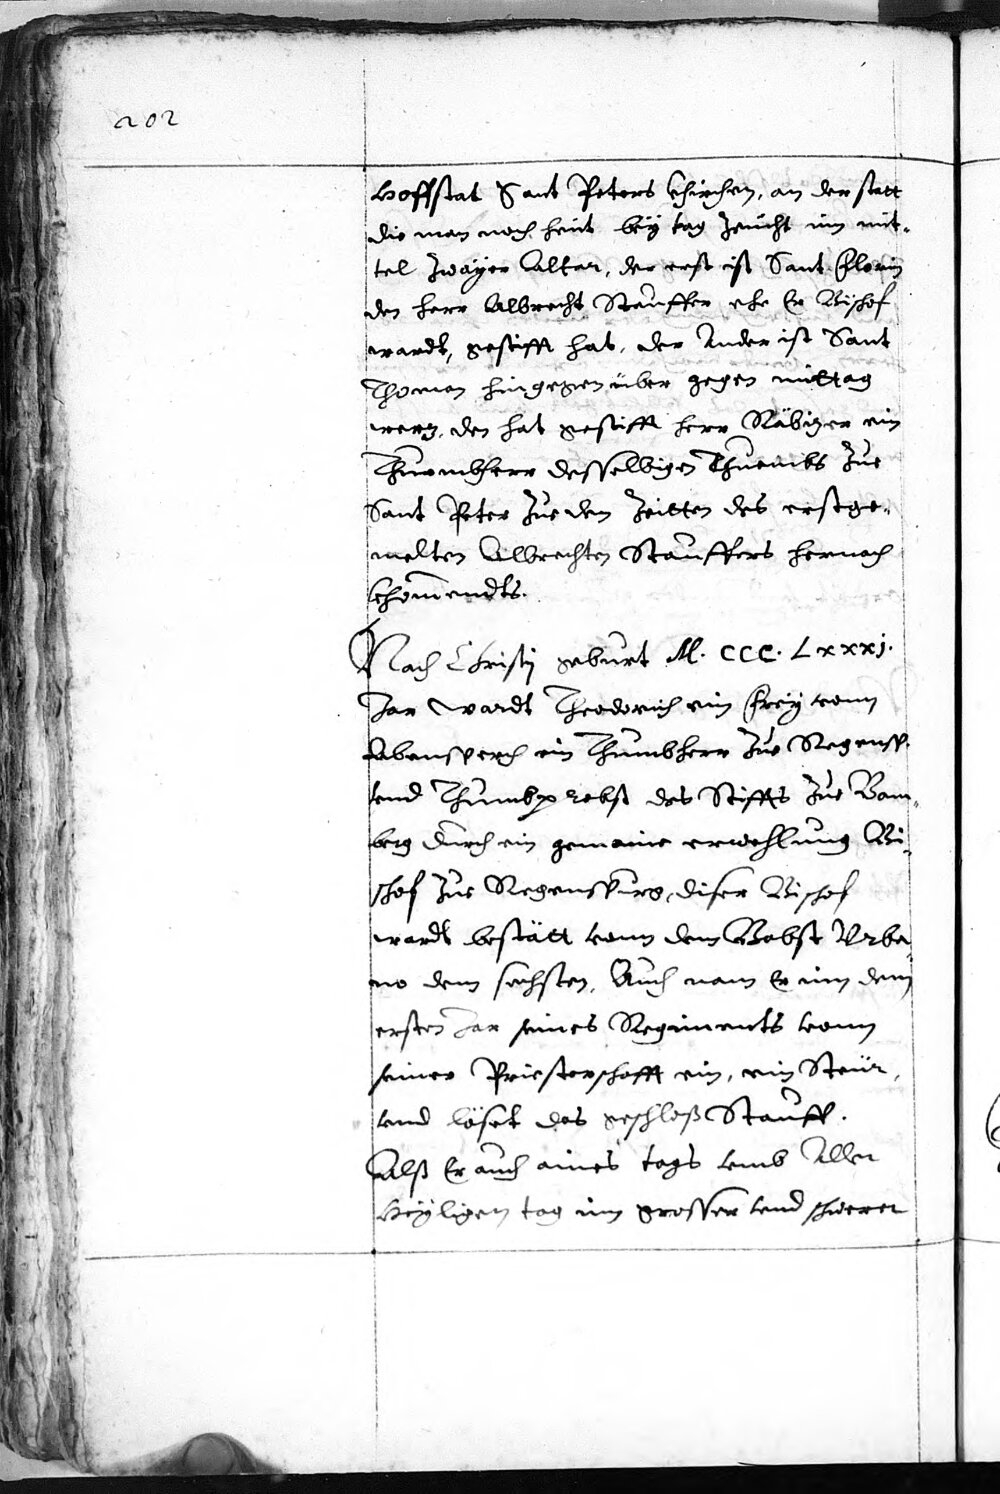 202
Hoffstat Sant Peters khirchen, an der statt
die man noch heüt beÿ tag zeücht im mit-
tel zwaÿer Altar, der erst ist Sant Florin
den herr Albrecht Stauffer ehe Er Bischof
wardt, gestifft hat, der Ander ist Sant
Thoman hingegen über gegen mittag
werz, den hat gestifft herr Räbizer ein
Thuembherr desselbigen Thuembs zue
Sant Peter zue den Zeitten des erstge-
melten Albrechten Stauffers hernach
khomendts.
Nach Christj geburt M. CCC. Lxxxj.
Jar wardt Theodorich ein freÿ vonn
Abensperch ein Thumbherr zue Regensp.
vnd Thumbprobst des Stiffts zue Bam-
berg durch ein gemaine erwehlung Bi-
schof zue Regenspurg, diser Bischof
wardt bestätt vonn dem Babst Vrba
no dem sechsten, Auch nam Er inn dem
ersten Jar seines Regiments vonn
seiner Priesterschafft ein, ein Steür,
vnd löset das geschloß Stauff.
Alß Er auch aines tags vmb Aller
Heÿligen tag inn grosser vnd schwerer